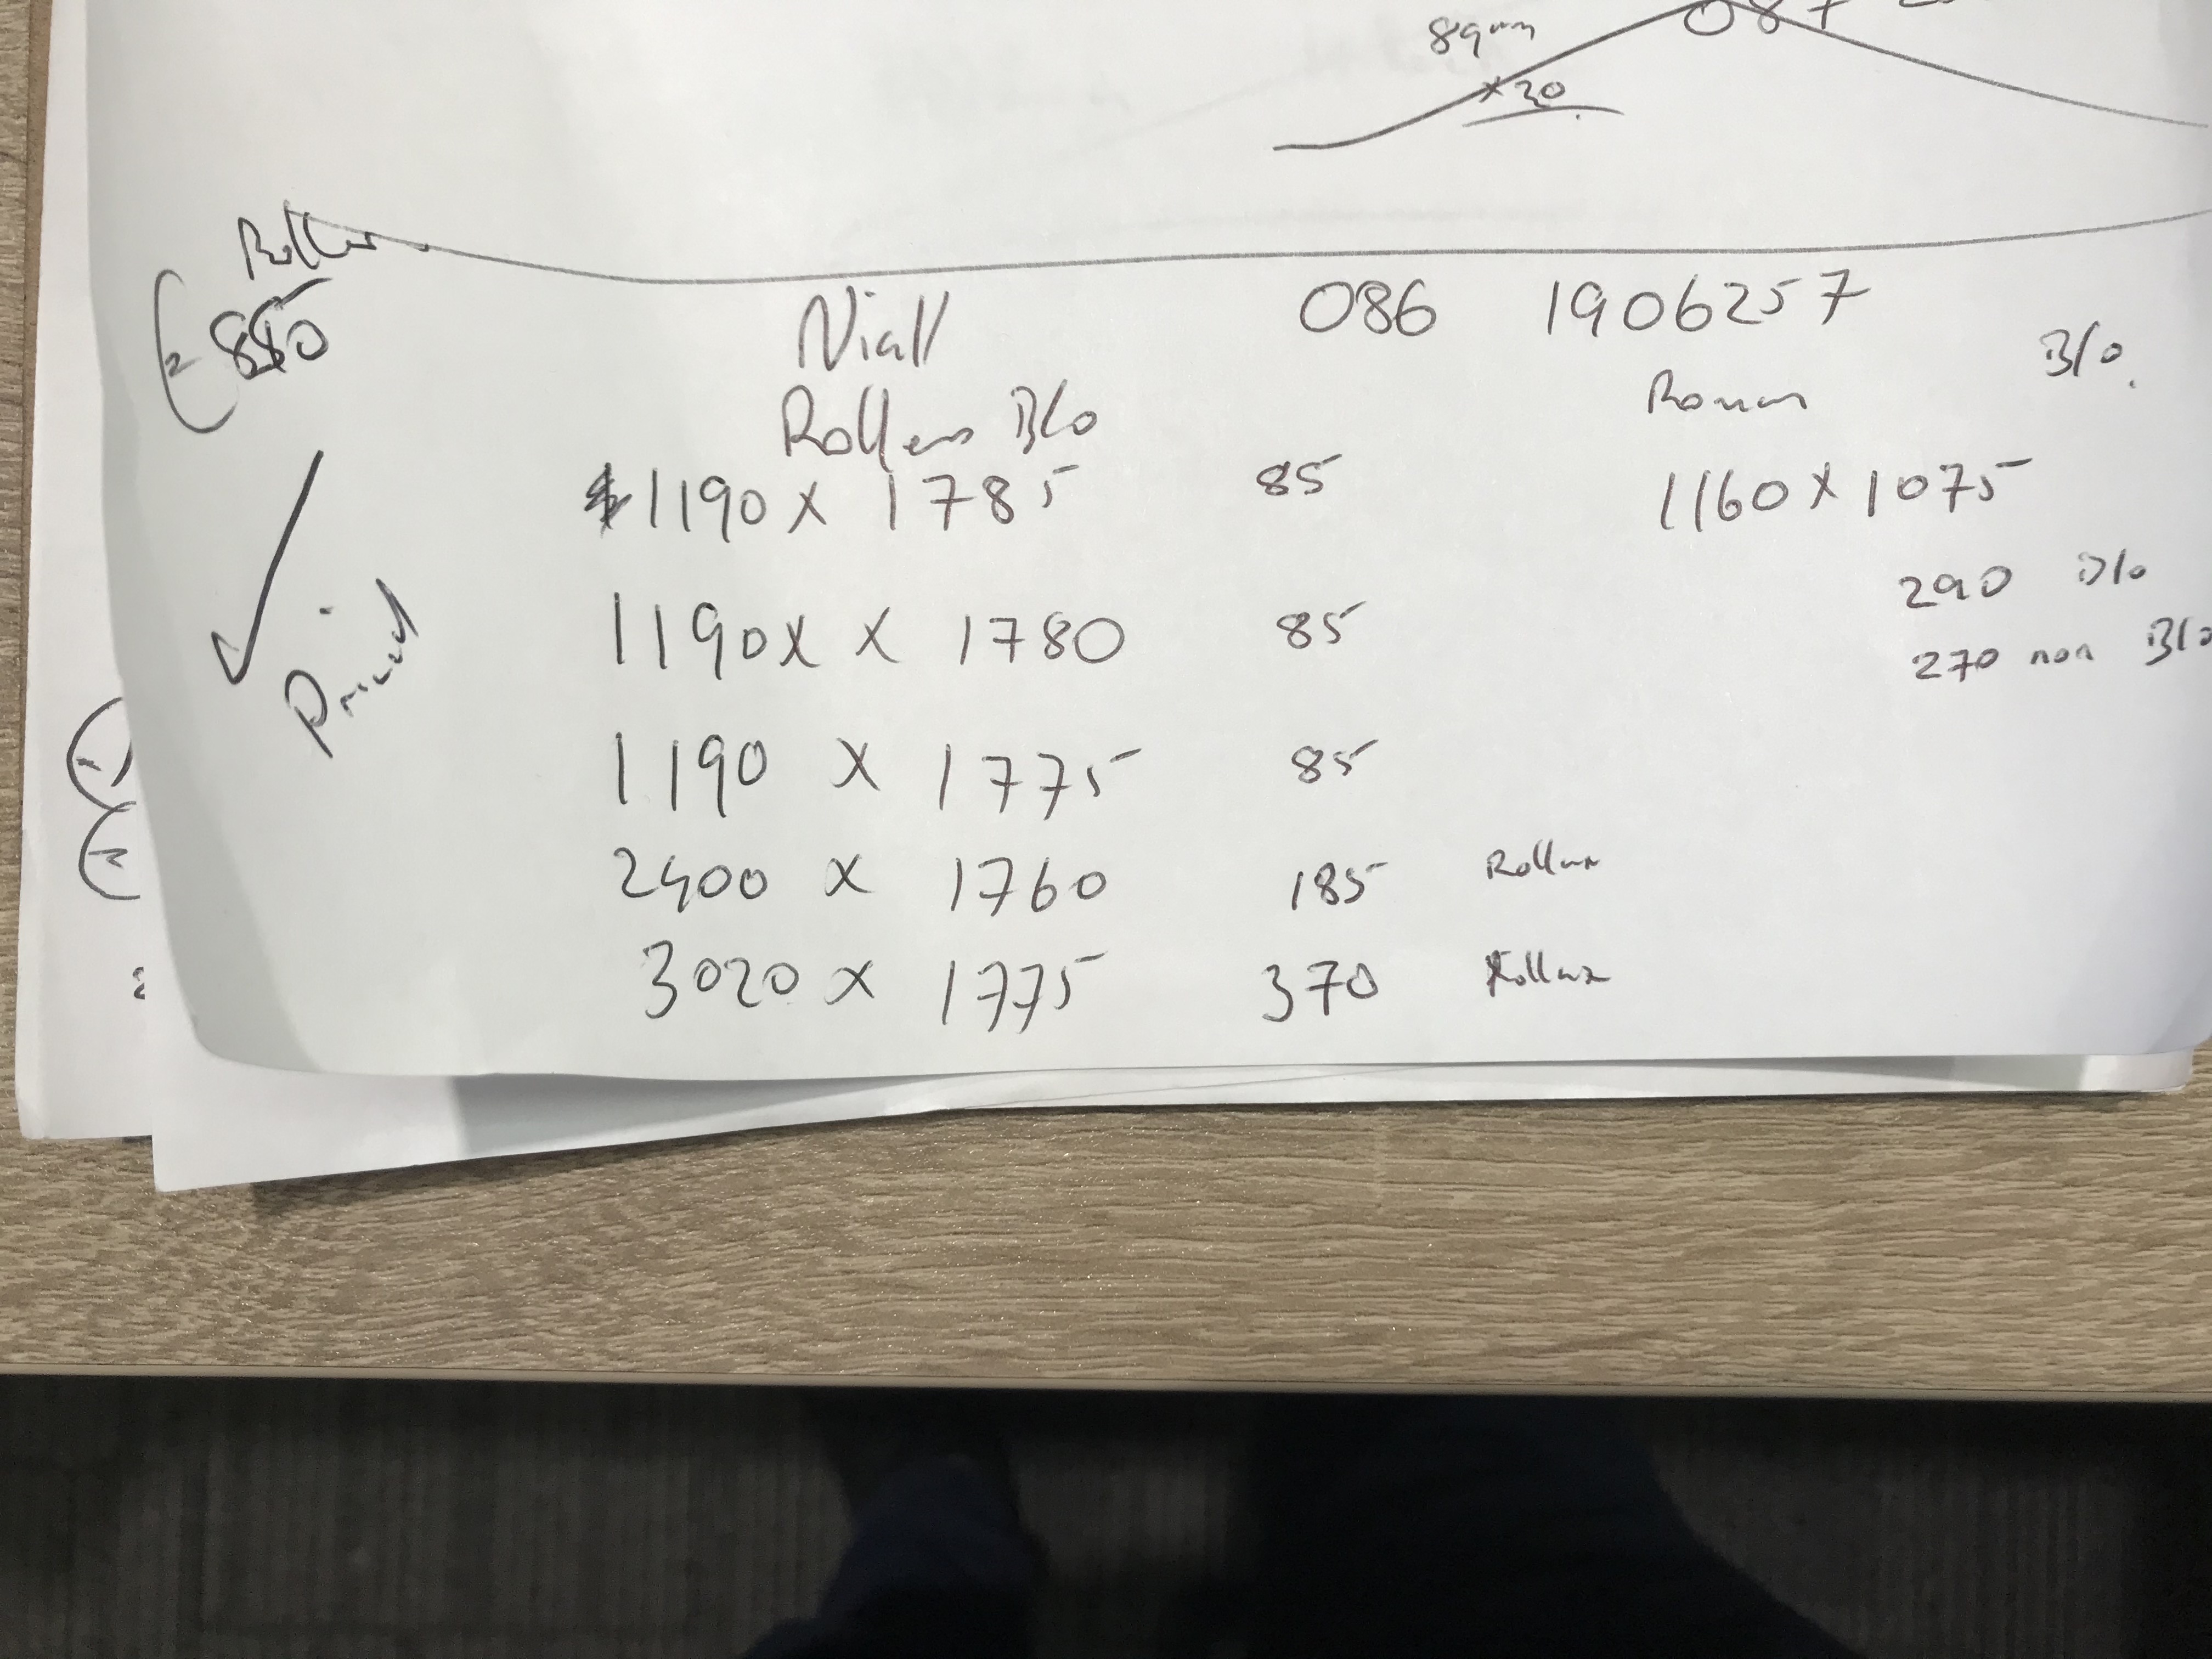 89mm
087
x20
Roller
€ 850
Niall 086 1906257
Rollers B/o Roman B/o.
1190 x 1785 85 1160 x 1075
290 B/o
1190x x 1780 85
270 non B/o
Priced
1190 x 1775 85
2400 x 1760 185 Rollux
3020 x 1775 370 Rollux